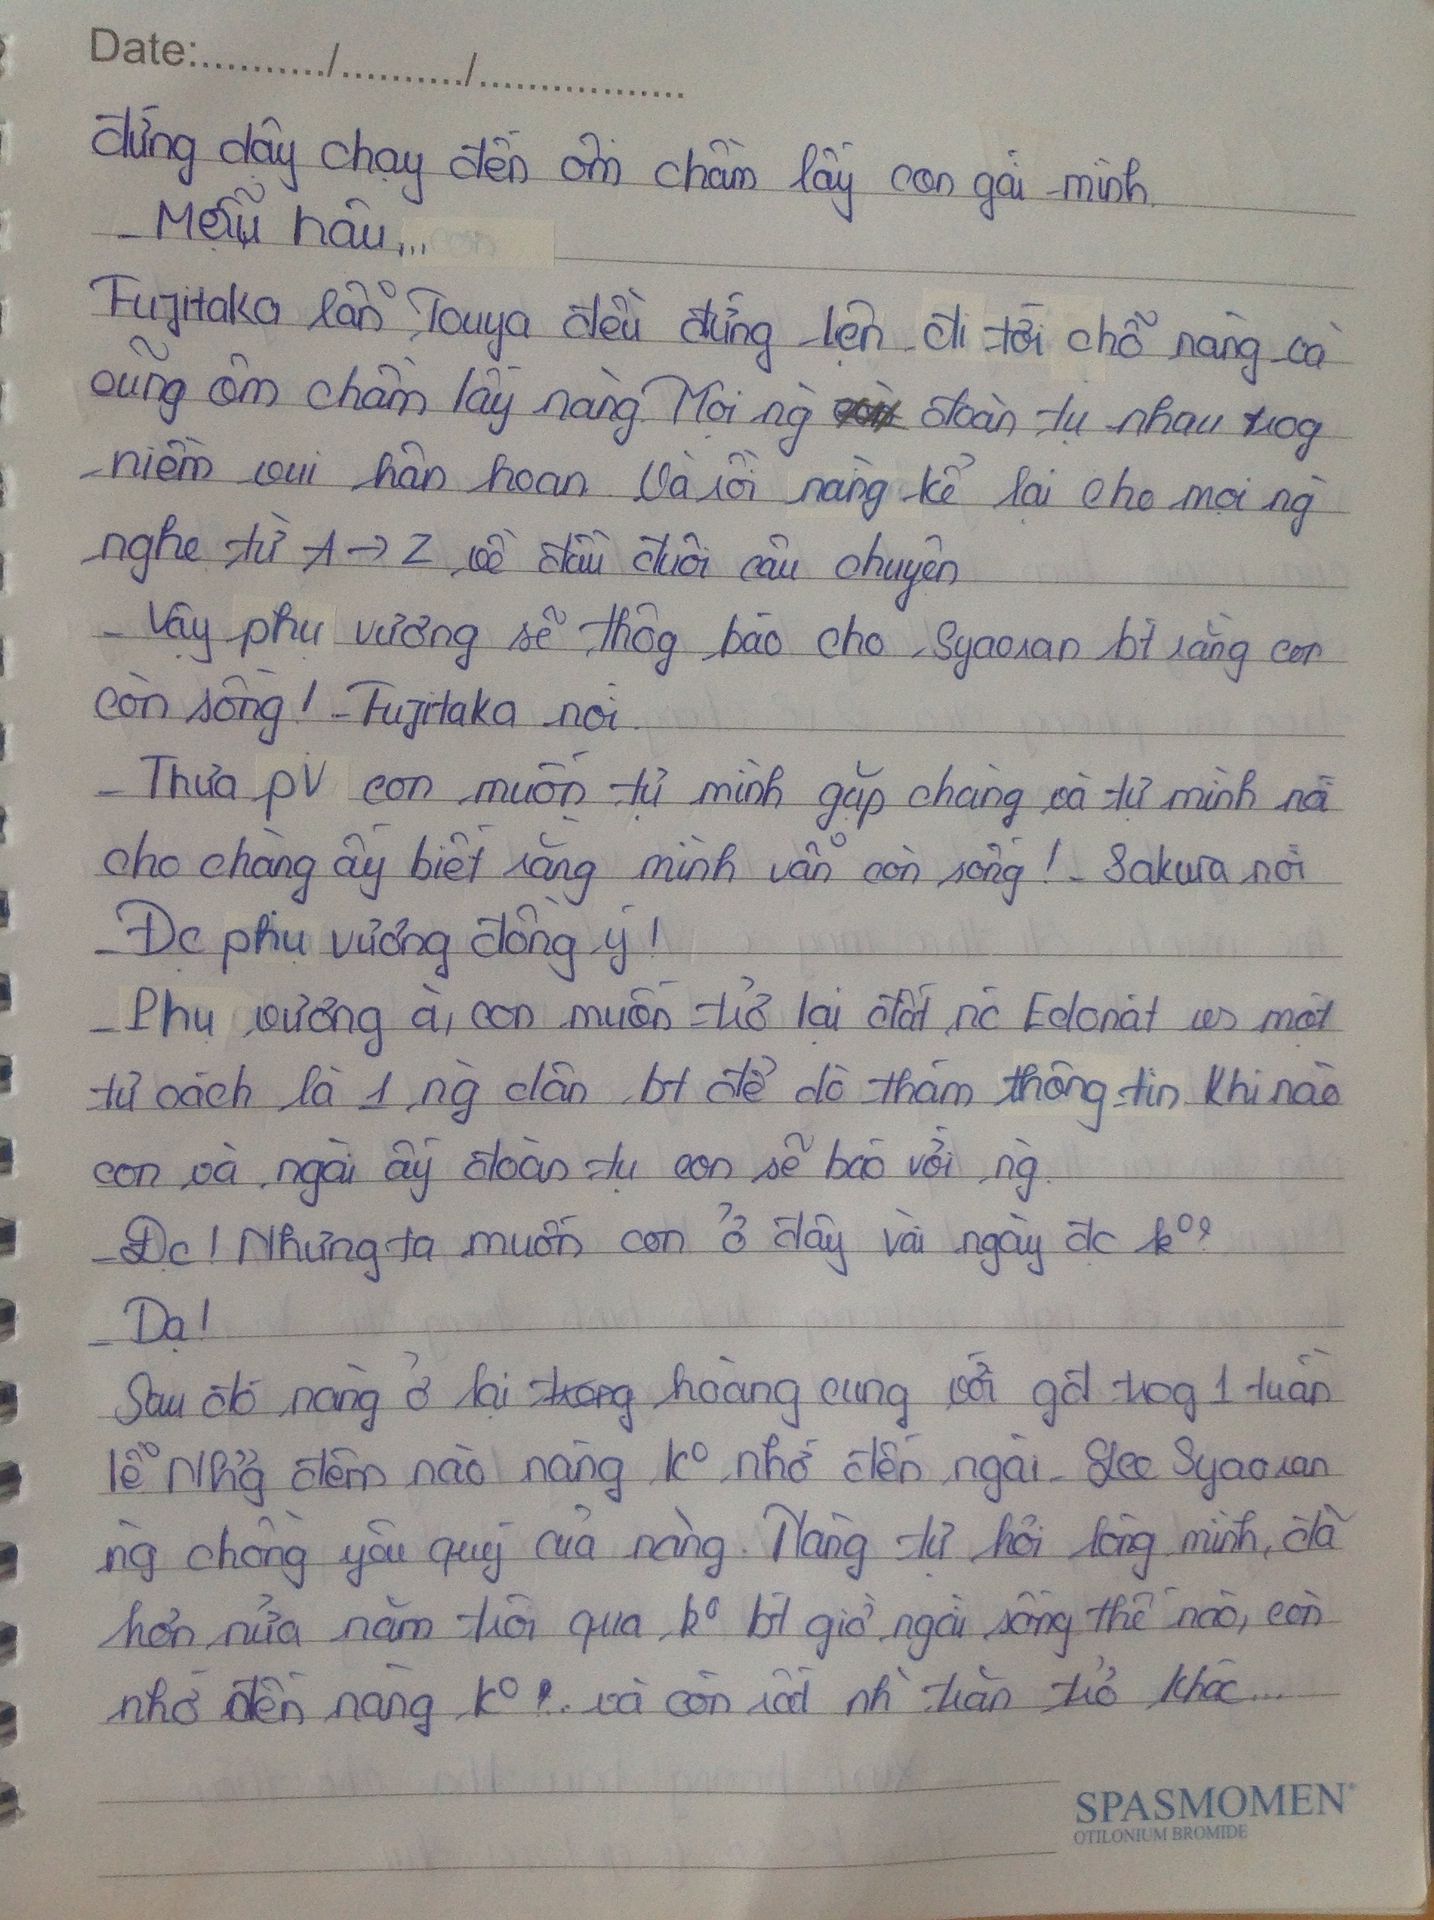 Date:.........../........../.................
đứng dậy chạy đến ôm chầm lấy con gái mình.
_ Mẫu hậu...
Fujitaka lẫn Touya đều đứng lên đi tới chỗ nàng và
cũng ôm chầm lấy nàng. Mọi ng đoàn tụ nhau trog
niềm vui hân hoan. Và rồi nàng kể lại cho mọi ng
nghe từ A -> Z về đầu đuôi câu chuyện
_ Vậy phụ vương sẽ thôg báo cho Syaoran bt rằng con
còn sống! _ Fujitaka nói.
_ Thưa pV con muốn tự mình gặp chàng và tự mình nói
cho chàng ấy biết rằng mình vẫn còn sống! _ Sakura nói
_ Đc phụ vương đồng ý!
_ Phụ vương à, con muốn trở lại đất nc Edonat vs một
tư cách là 1 ng dân bt để dò thám thông tin. Khi nào
con và ngài ấy đoàn tụ con sẽ báo với ng.
_ Đc! Nhưng ta muốn con ở đây vài ngày đc ko?
_ Dạ!
Sau đó nàng ở lại trong hoàng cung với gđ trog 1 tuần
lễ. Nhữg đêm nào nàng ko nhớ đến ngài _ Slee Syaoran
ng chồng yêu quý của nàng. Nàng tự hỏi lòng mình, đã
hơn nửa năm trôi qua ko bt giờ ngài sống thế nào, còn
nhớ đến nàng ko?.. và còn rất nh` trăn trở khác...
SPASMOMEN®
OTILONIUM BROMIDE